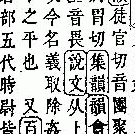 徒官切音團聚
胃切集韻韻會
音畏說文从上
名義取除
之平也 又百
部五代時尉皆